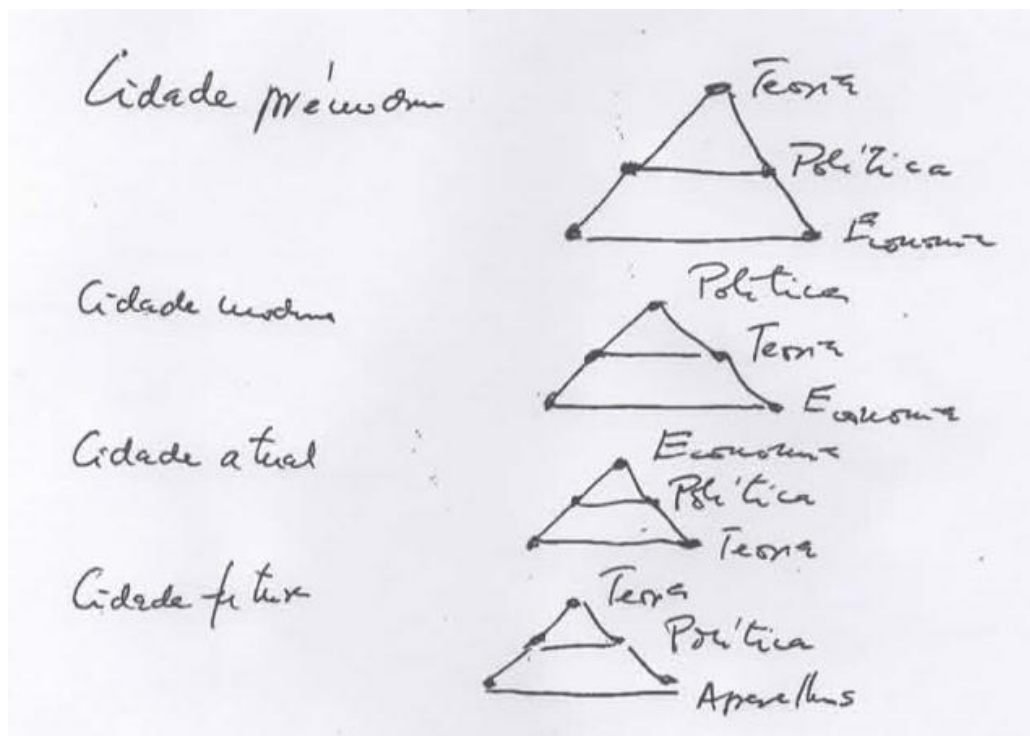 Cidade prémoderna
Teoria
Política
Economia
Cidade moderna
Política
Teoria
Economia
Cidade atual
Economia
Política
Teoria
Cidade futura
Teoria
Política
Aparelhos